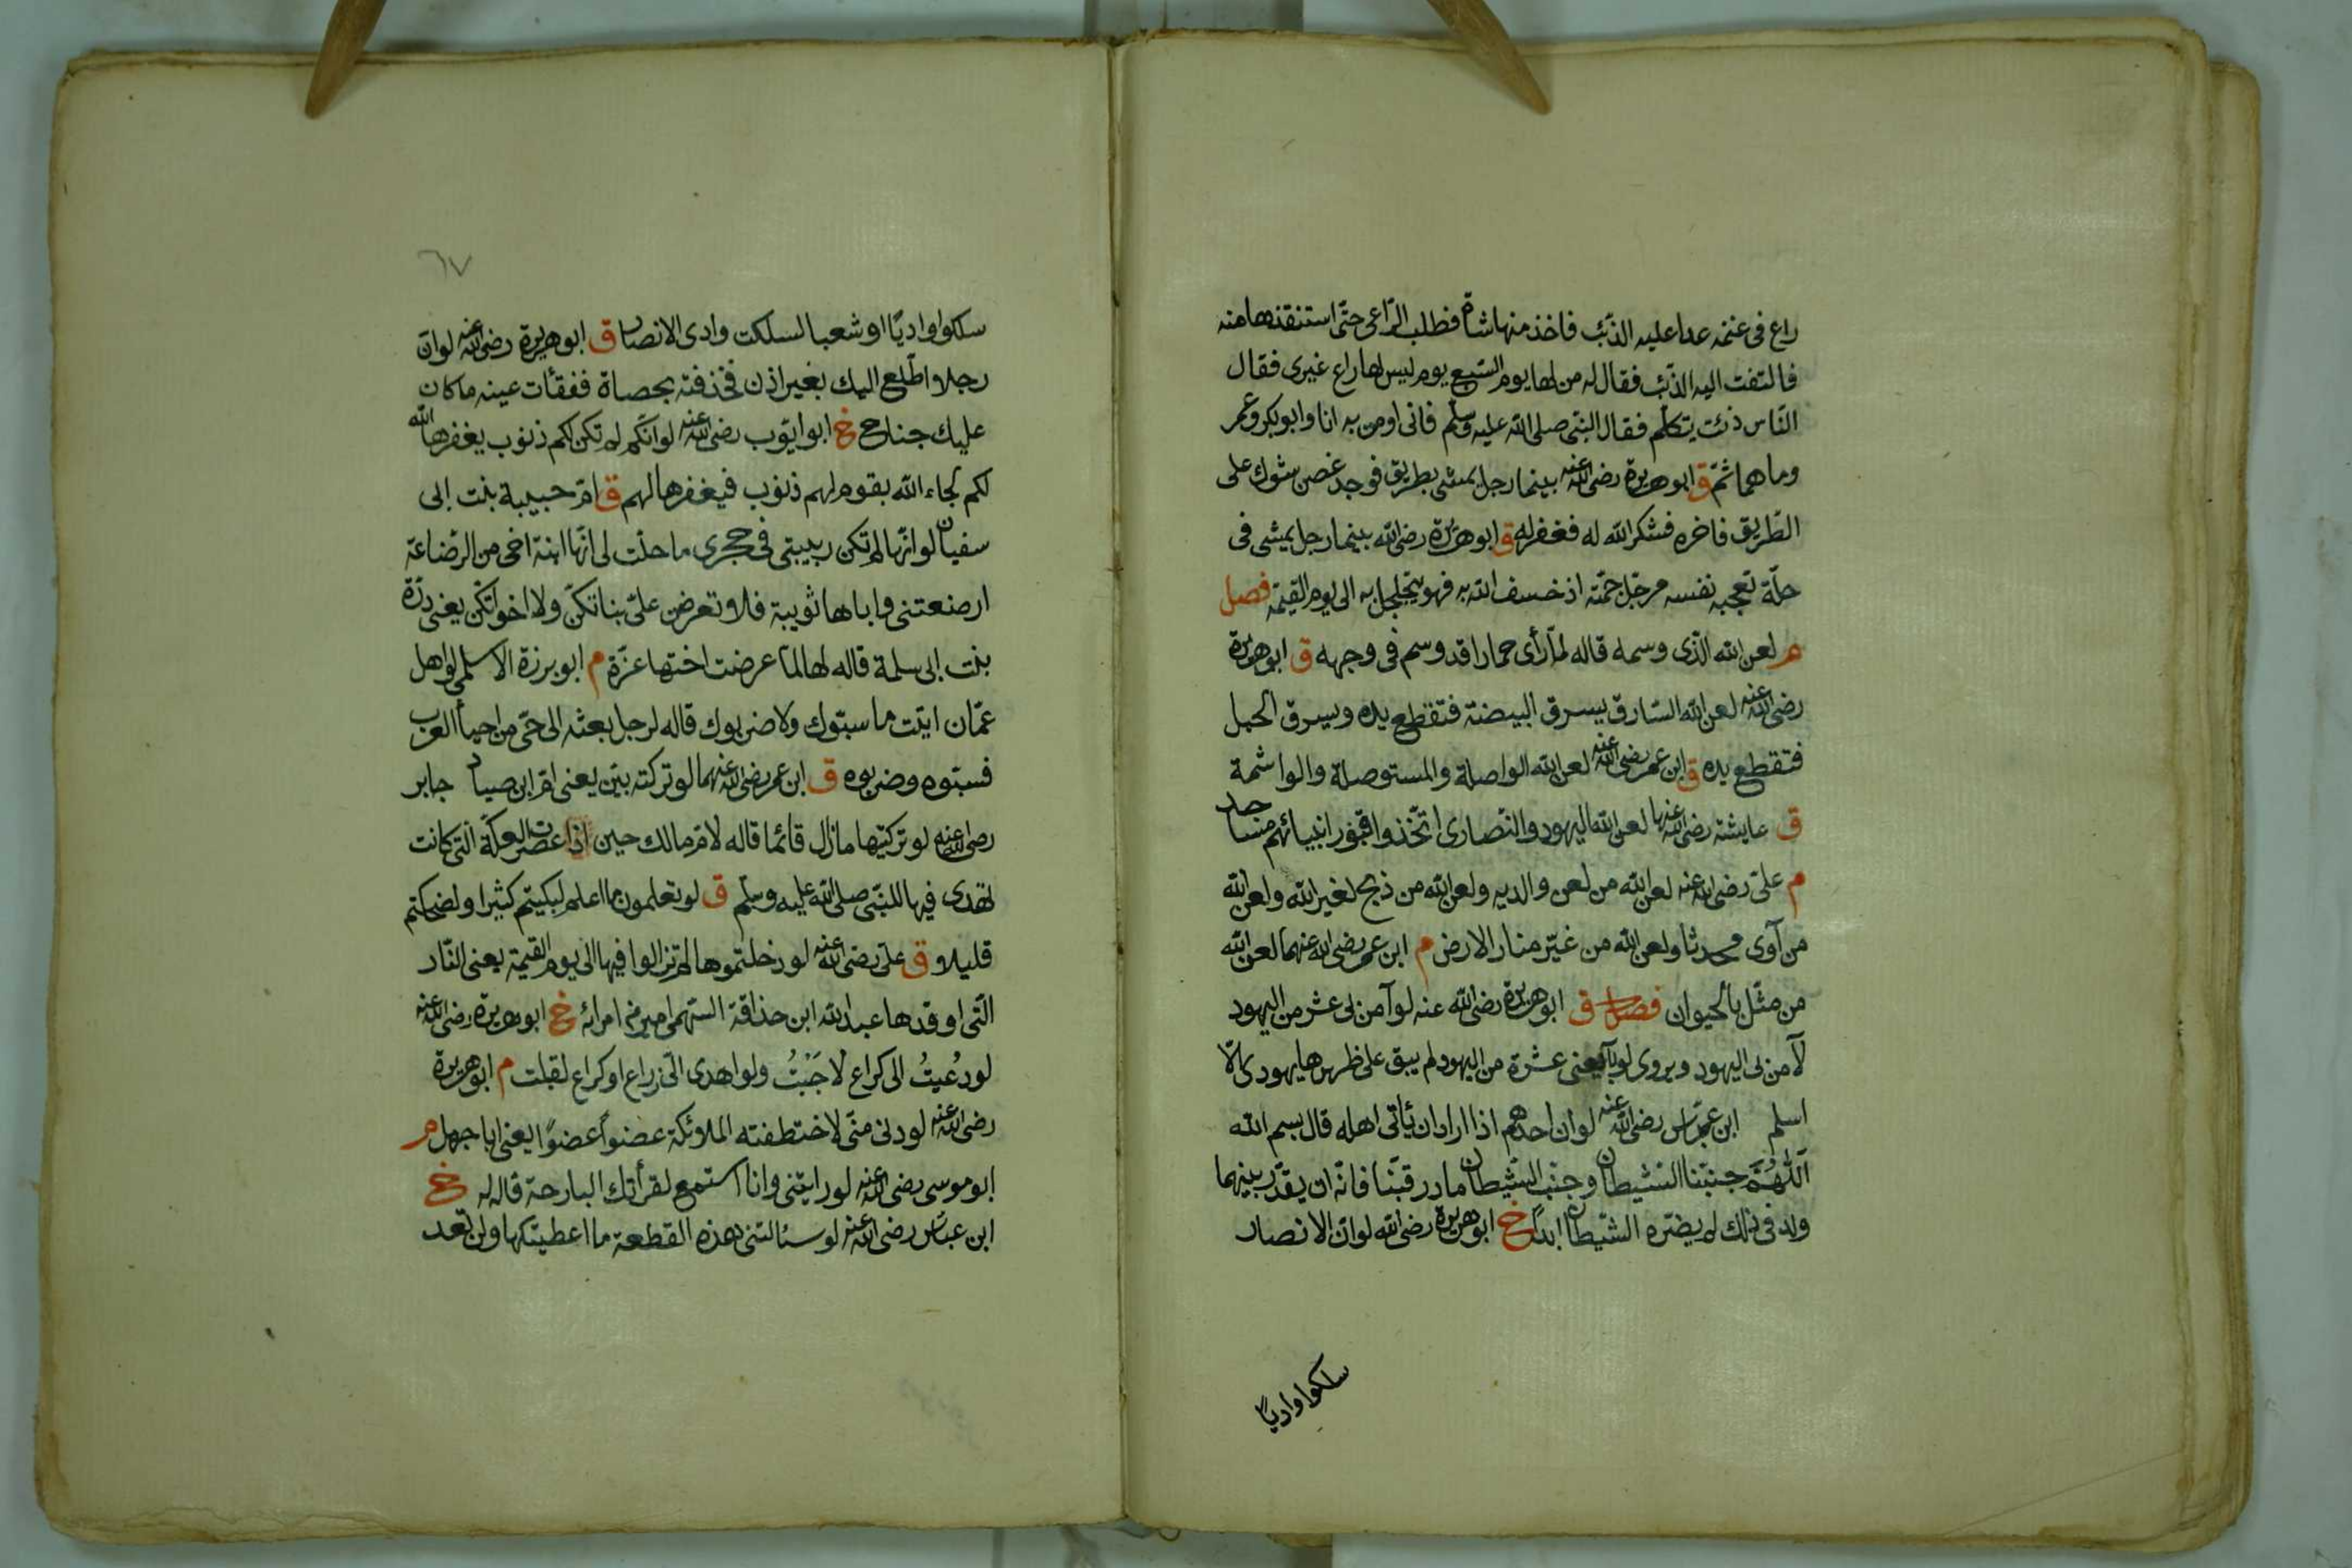 راع فى غنمه عدا عليه الذئب فاخذ منها شاة فطلب الراعى حتى استنقذها منه
فالتفت اليه الذئب فقال له من لها يوم السبع يوم ليس لها راع غيرى فقال
الناس ذئب يتكلم فقال النبى صلى الله عليه وسلم فانى اومن به انا وابو بكر وعمر
وما هما ثم ق ابو هريرة رضى الله عنه بينما رجل يمشى بطريق فوجد غصن شوك على
الطريق فاخره فشكر الله له فغفر له ق ابو هريرة رضى الله بينما رجل يمشى فى
حلة تعجبه نفسه مرجل جمته اذ خسف الله به فهو يتجلجل به الى يوم القيمة فصل
م لعن الله الذى وسمه قاله لما رأى حمارا قد وسم فى وجهه ق ابو هريرة
رضى الله عنه لعن الله السارق يسرق البيضة فتقطع يده ويسرق الحبل
فتقطع يده ق ابن عمر رضى الله عنه لعن الله الواصلة والمستوصلة والواشمة
ق عايشه رضى الله عنها لعن الله اليهود والنصارى اتخذوا قبور انبيائهم مساجد
م على رضى الله عنه لعن الله من لعن والديه ولعن الله من ذبح لغير الله ولعن الله
من آوى محدثا ولعن الله من غير منار الارض م ابن عمر رضى الله عنهما لعن الله
من مثل بالحيوان فصل ق ابو هريرة رضى الله عنه لو آمن بى عشر من اليهود
لآمن بى اليهود ويروى لو يعنى عشرة من اليهود لم يبق على ظهرها يهودى الا
اسلم ابن عباس رضى الله عنه لو ان احدهم اذا اراد ان يأتى اهله قال بسم الله
اللهم جنبنا الشيطان وجنب الشيطان ما رزقتنا فانه ان يقدر بينهما
ولد فى ذلك لم يضره الشيطان ابدا خ ابو هريرة رضى الله لو ان الانصار
سلكوا واديا
٦٧
سلكوا واديا او شعبا لسلكت وادى الانصار ق ابو هريرة رضى الله عنه لو ان
رجلا اطلع اليك بغير اذن فخذفته بحصاة ففقأت عينه ما كان
عليك جناح خ ابو ايوب رضى الله عنه لو انكم لم تكن لكم ذنوب يغفرها الله
لكم لجاء الله بقوم لهم ذنوب فيغفرها لهم ق ام حبيبة بنت ابى
سفيان لو انها لم تكن ربيبتى فى حجرى ما حلت لى انها ابنة اخى من الرضاعة
ارضعتنى واباها ثويبة فلا تعرضن على بناتكن ولا اخواتكن يعنى درة
بنت ابى سلمة قاله لها لما عرضت اختها عزة م ابو برزة الاسلمى لو اهل
عمان اتيت ما سبوك ولا ضربوك قاله لرجل بعثه الى حى من احياء العرب
فسبوه وضربوه ق ابن عمر رضى الله عنهما لو تركته بين يعنى ام ابن صياد جابر
رضى الله عنه لو تركتيها ما زال قائما قاله لام مالك حين اذا عصرت العكة التى كانت
تهدى فيها للنبى صلى الله عليه وسلم ق لو تعلمون ما اعلم لبكيتم كثيرا ولضحكتم
قليلا ق على رضى الله عنه لو دخلتموها لم تزالوا فيها الى يوم القيمة يعنى النار
التى اوقدها عبد الله ابن حذافة السهمى امير من امرائه خ ابو هريرة رضى الله عنه
لو دُعيتُ الى كراع لاجَبْتُ ولو اهدى الى ذراع او كراع لقبلت م ابو هريرة
رضى الله عنه لو دنى منى لاختطفته الملائكة عضواً عضوًا يعنى ابا جهل م
ابو موسى رضى الله عنه لو رايتنى وانا استمع لقرأتك البارحة قاله له خ
ابن عباس رضى الله عنه لو سئالتنى هذه القطعة ما اعطيتكها ولن تعد